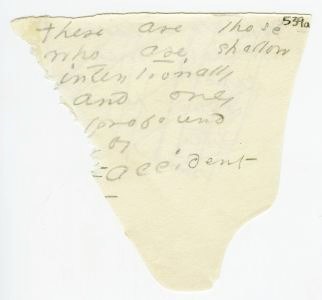 539a
there are those
who are shallow
intentionally
and only
profound
by
accident -